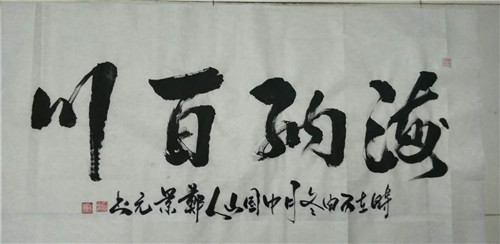 海纳百川
時在丙申冬月中国山人鄭景元书